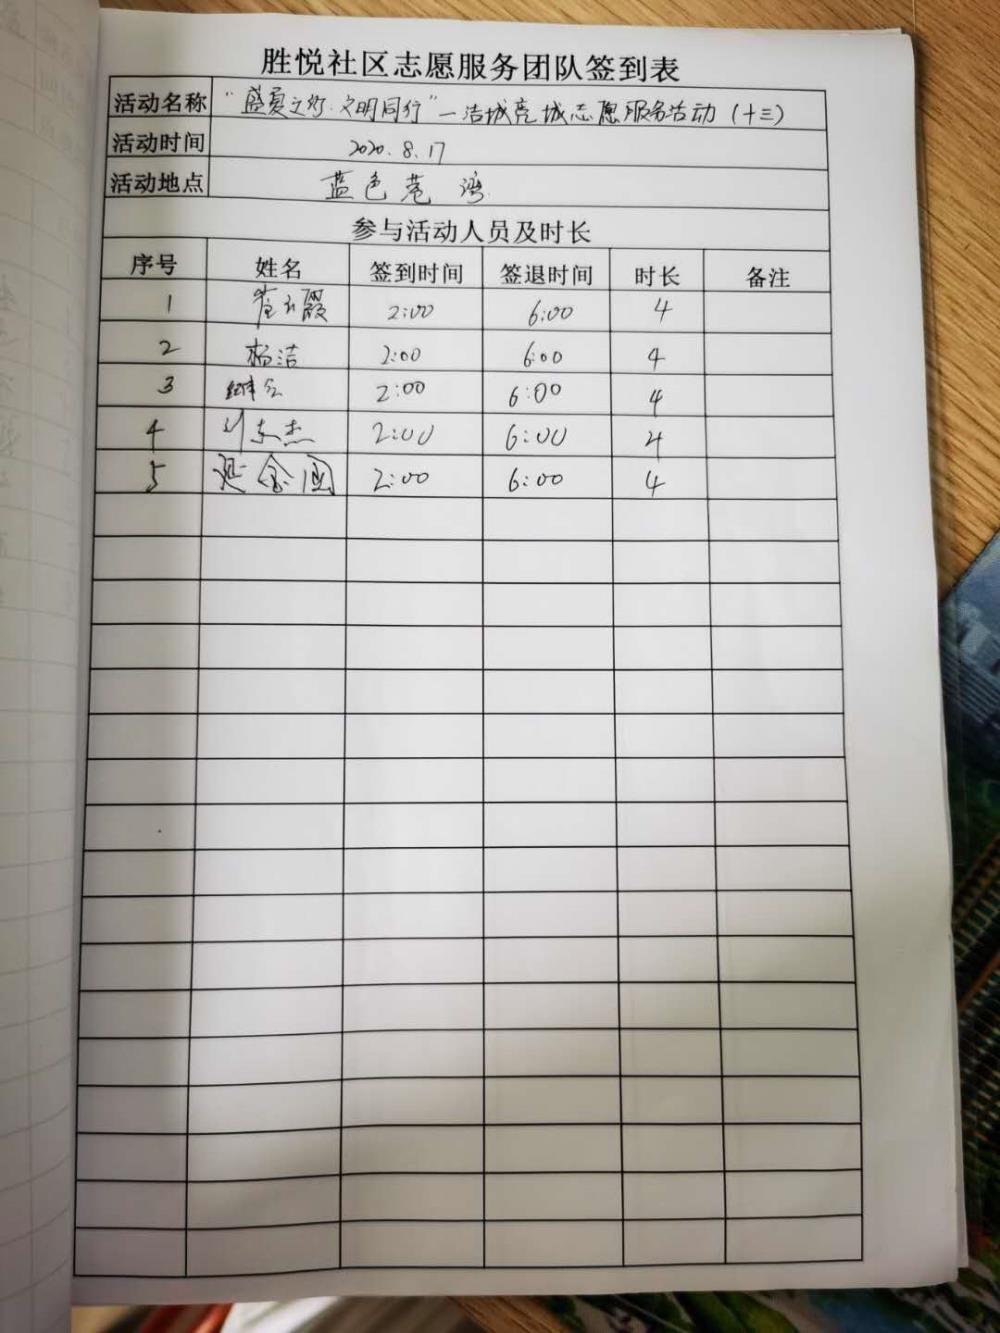 胜悦社区志愿服务团队签到表
活动名称 "盛夏之行·文明同行"—洁城亮城志愿服务活动(十三)
活动时间 2020.8.17
活动地点 蓝色港湾
参与活动人员及时长
序号 姓名 签到时间 签退时间 时长 备注
1 2:00 6:00 4
2 杨洁 2:00 6:00 4
3 2:00 6:00 4
4 2:00 6:00 4
5 2:00 6:00 4